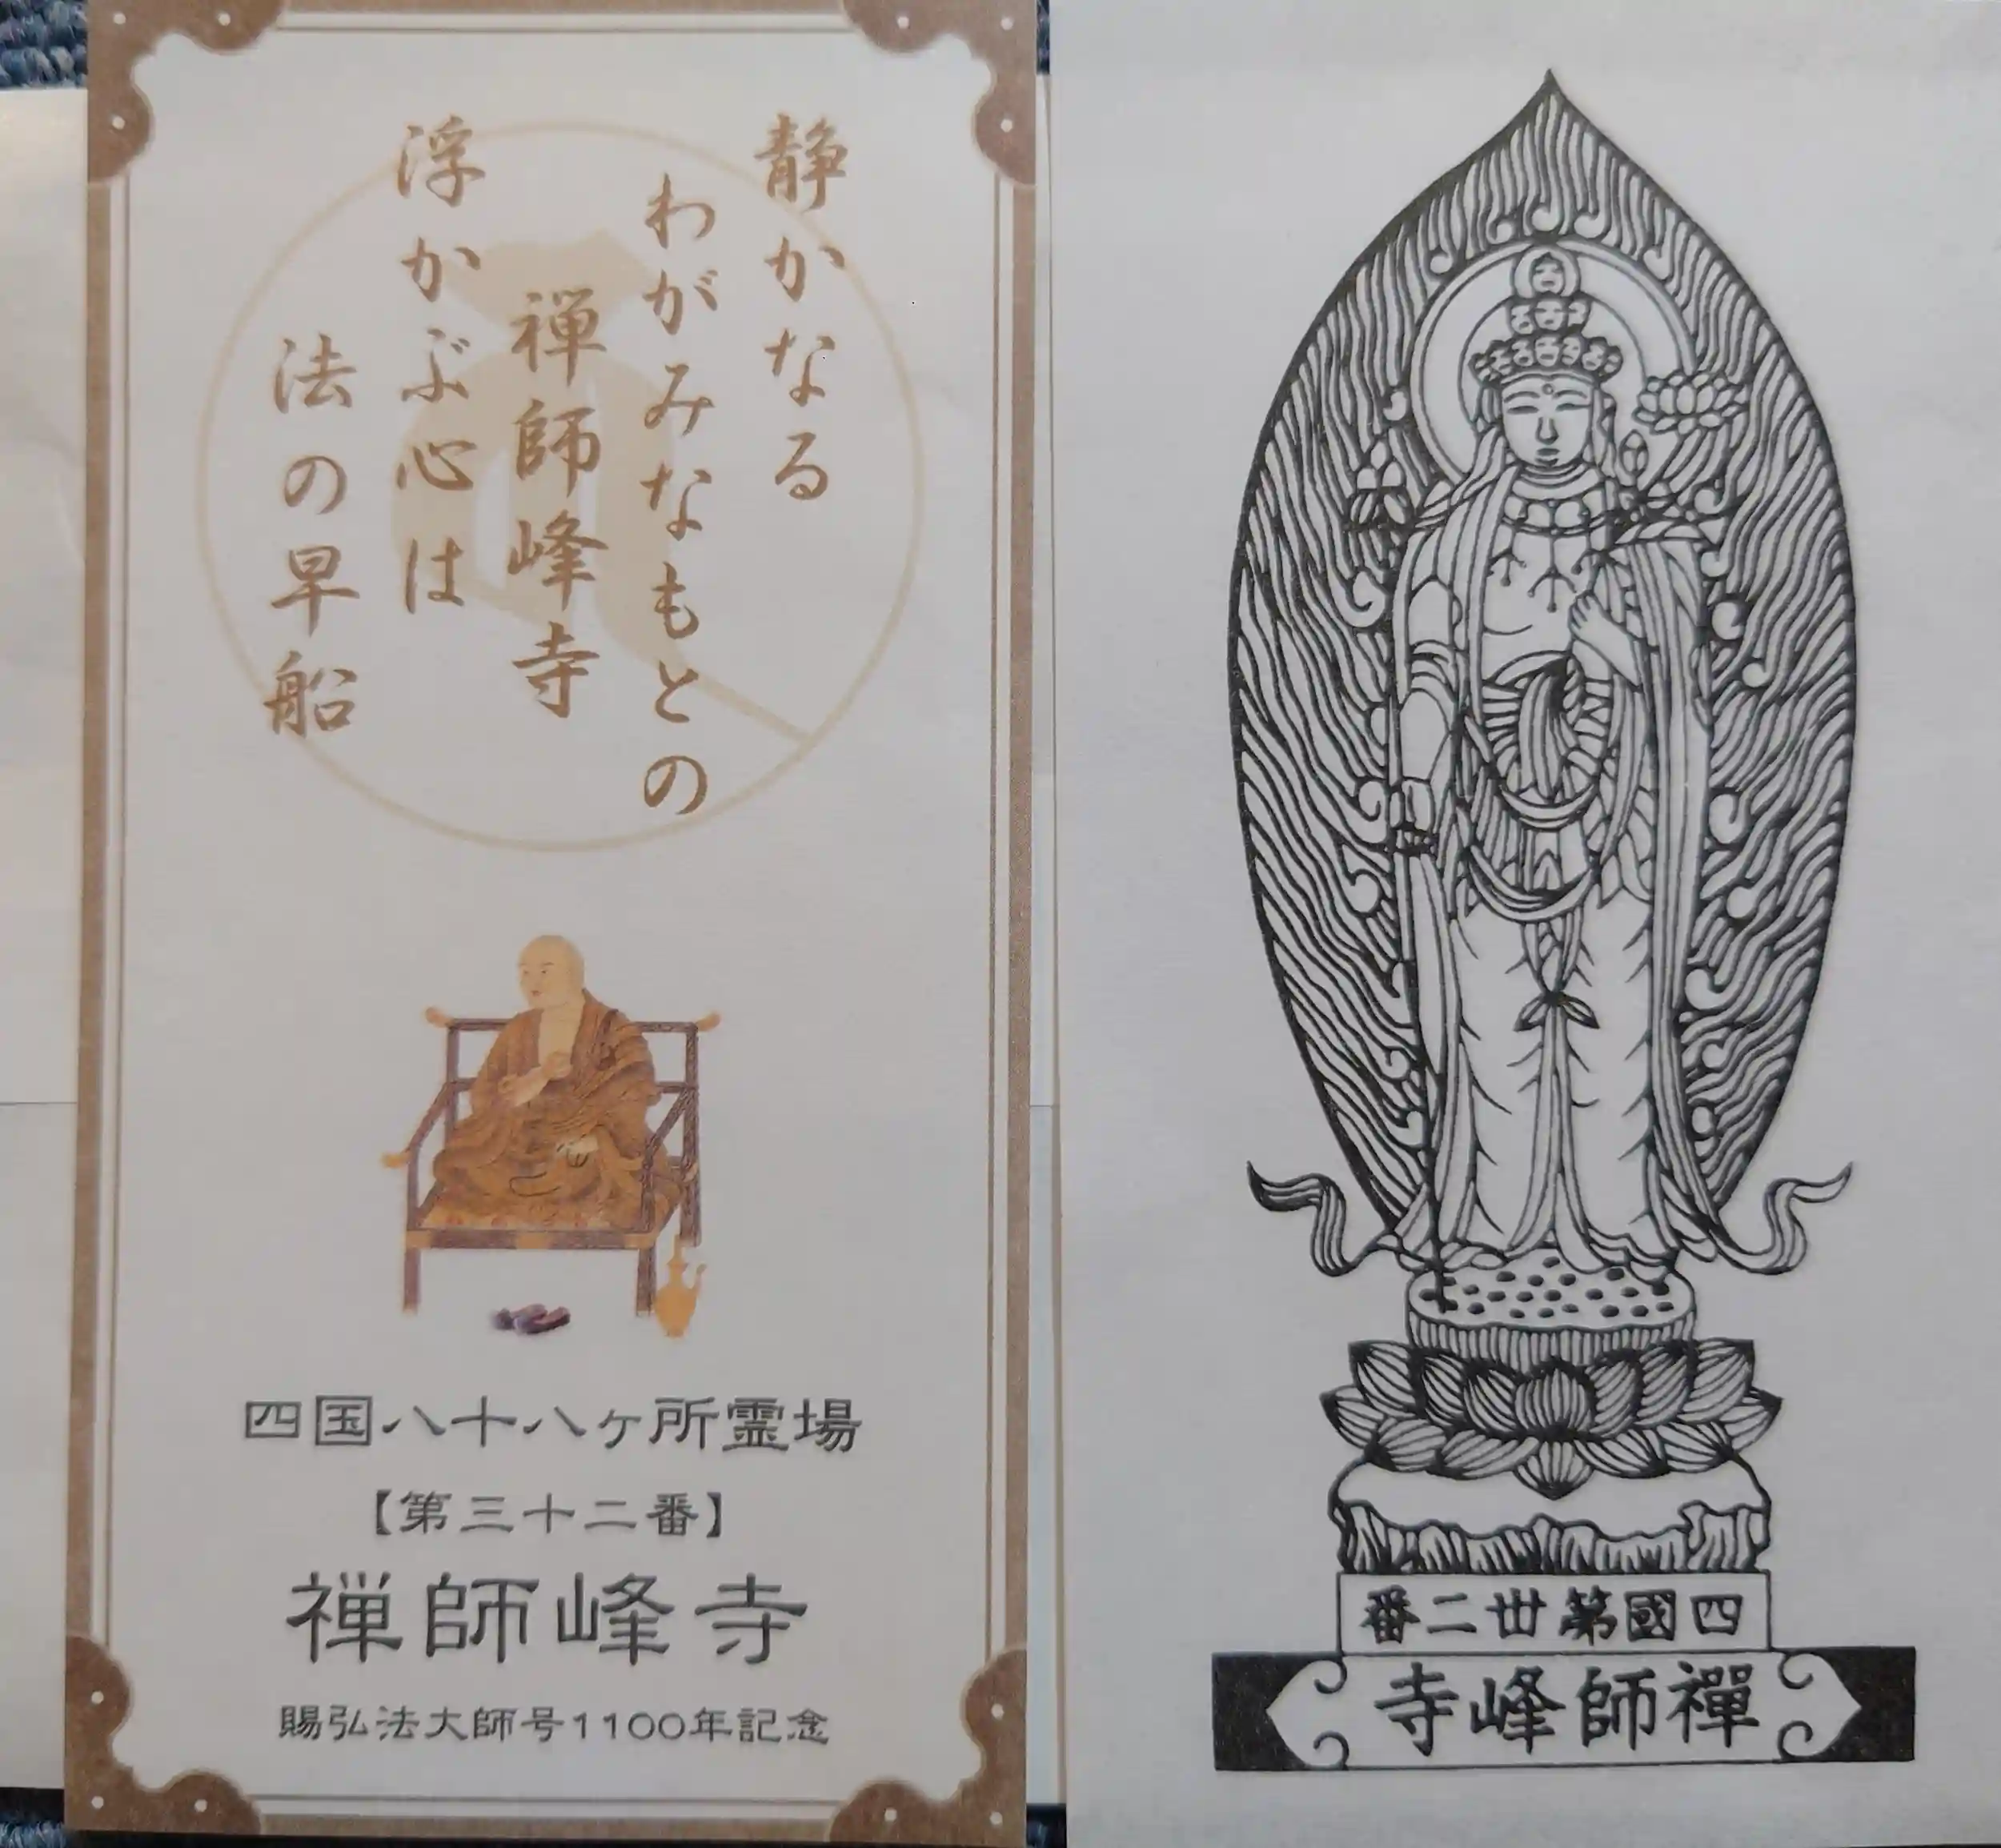 静かなる
わがみなもとの
禅師峰寺
浮かぶ心は
法の早船
四国八十八ヶ所霊場
【第三十二番】
禅師峰寺
賜弘法大師号1100年記念
四國第丗二番
禪師峰寺